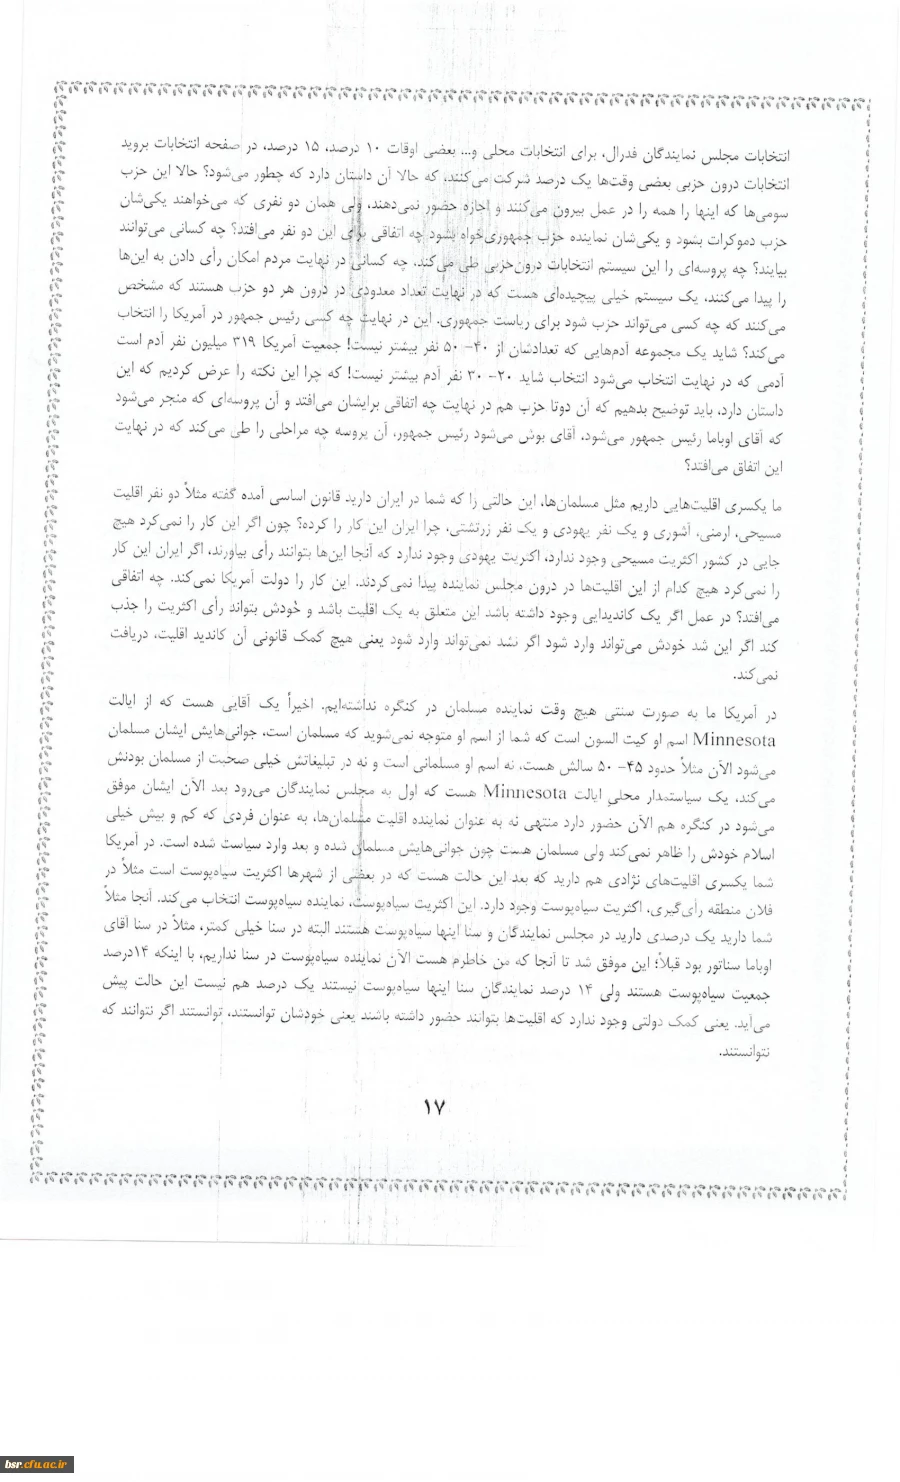 انتخابات مجلس نمایندگان فدرال، برای انتخابات محلی و... بعضی اوقات ۱۰ درصد، ۱۵ درصد، در صفحه انتخابات بروید
انتخابات درون حزبی بعضی وقت‌ها یک درصد شرکت می‌کنند، که حالا آن داستان دارد که چطور می‌شود؟ حالا این حزب
سومی‌ها که اینها را همه را در عمل بیرون می‌کنند و اجازه حضور نمی‌دهند، ولی همان دو نفری که می‌خواهند یکی‌شان
حزب دموکرات بشود و یکی‌شان نماینده حزب جمهوری‌خواه بشود چه اتفاقی برای این دو نفر می‌افتد؟ چه کسانی می‌توانند
بیایند؟ چه پروسه‌ای را این سیستم انتخابات درون‌حزبی طی می‌کند. چه کسانی در نهایت مردم امکان رأی دادن به این‌ها
را پیدا می‌کنند، یک سیستم خیلی پیچیده‌ای هست که در نهایت تعداد معدودی در درون هر دو حزب هستند که مشخص
می‌کنند که چه کسی می‌تواند حزب شود برای ریاست جمهوری. این در نهایت چه کسی رئیس جمهور در آمریکا را انتخاب
می‌کند؟ شاید یک مجموعه آدم‌هایی که تعدادشان از ۴۰- ۵۰ نفر بیشتر نیست! جمعیت آمریکا ۳۱۹ میلیون نفر آدم است
آدمی که در نهایت انتخاب می‌شود انتخاب شاید ۲۰- ۳۰ نفر آدم بیشتر نیست! که چرا این نکته را عرض کردیم که این
داستان دارد، باید توضیح بدهیم که آن دوتا حزب هم در نهایت چه اتفاقی برایشان می‌افتد و آن پروسه‌ای که منجر می‌شود
که آقای اوباما رئیس جمهور می‌شود، آقای بوش می‌شود رئیس جمهور، آن پروسه چه مراحلی را طی می‌کند که در نهایت
این اتفاق می‌افتد؟
ما یکسری اقلیت‌هایی داریم مثل مسلمان‌ها، این حالتی را که شما در ایران دارید قانون اساسی آمده گفته مثلاً دو نفر اقلیت
مسیحی، ارمنی، آشوری و یک نفر یهودی و یک نفر زرتشتی، چرا ایران این کار را کرده؟ چون اگر این کار را نمی‌کرد هیچ
جایی در کشور اکثریت مسیحی وجود ندارد، اکثریت یهودی وجود ندارد که آنجا این‌ها بتوانند رأی بیاورند، اگر ایران این کار
را نمی‌کرد هیچ کدام از این اقلیت‌ها در درون مجلس نماینده پیدا نمی‌کردند. این کار را دولت آمریکا نمی‌کند. چه اتفاقی
می‌افتد؟ در عمل اگر یک کاندیدایی وجود داشته باشد این متعلق به یک اقلیت باشد و خودش بتواند رأی اکثریت را جذب
کند اگر این شد خودش می‌تواند وارد شود اگر نشد نمی‌تواند وارد شود یعنی هیچ کمک قانونی آن کاندید اقلیت، دریافت
نمی‌کند.
در آمریکا ما به صورت سنتی هیچ وقت نماینده مسلمان در کنگره نداشته‌ایم. اخیراً یک آقایی هست که از ایالت
Minnesota اسم او کیت السون است که شما از اسم او متوجه نمی‌شوید که مسلمان است، جوانی‌هایش ایشان مسلمان
می‌شود الآن مثلاً حدود ۴۵- ۵۰ سالش هست، نه اسم او مسلمانی است و نه در تبلیغاتش خیلی صحبت از مسلمان بودنش
می‌کند، یک سیاستمدار محلی ایالت Minnesota هست که اول به مجلس نمایندگان می‌رود بعد الآن ایشان موفق
می‌شود در کنگره هم الآن حضور دارد منتهی نه به عنوان نماینده اقلیت مسلمان‌ها، به عنوان فردی که کم و بیش خیلی
اسلام خودش را ظاهر نمی‌کند ولی مسلمان هست چون جوانی‌هایش مسلمان شده و بعد وارد سیاست شده است. در آمریکا
شما یکسری اقلیت‌های نژادی هم دارید که بعد این حالت هست که در بعضی از شهرها اکثریت سیاه‌پوست است مثلاً در
فلان منطقه رأی‌گیری، اکثریت سیاه‌پوست وجود دارد. این اکثریت سیاه‌پوست، نماینده سیاه‌پوست انتخاب می‌کند. آنجا مثلاً
شما دارید یک درصدی دارید در مجلس نمایندگان و سنا اینها سیاه‌پوست هستند البته در سنا خیلی کمتر، مثلاً در سنا آقای
اوباما سناتور بود قبلاً؛ این موفق شد تا آنجا که من خاطرم هست الآن نماینده سیاه‌پوست در سنا نداریم، با اینکه ۱۴درصد
جمعیت سیاه‌پوست هستند ولی ۱۴ درصد نمایندگان سنا اینها سیاه‌پوست نیستند یک درصد هم نیست این حالت پیش
می‌آید. یعنی کمک دولتی وجود ندارد که اقلیت‌ها بتوانند حضور داشته باشند یعنی خودشان توانستند، توانستند اگر نتوانند که
نتوانستند.
۱۷
bsr.cfu.ac.ir